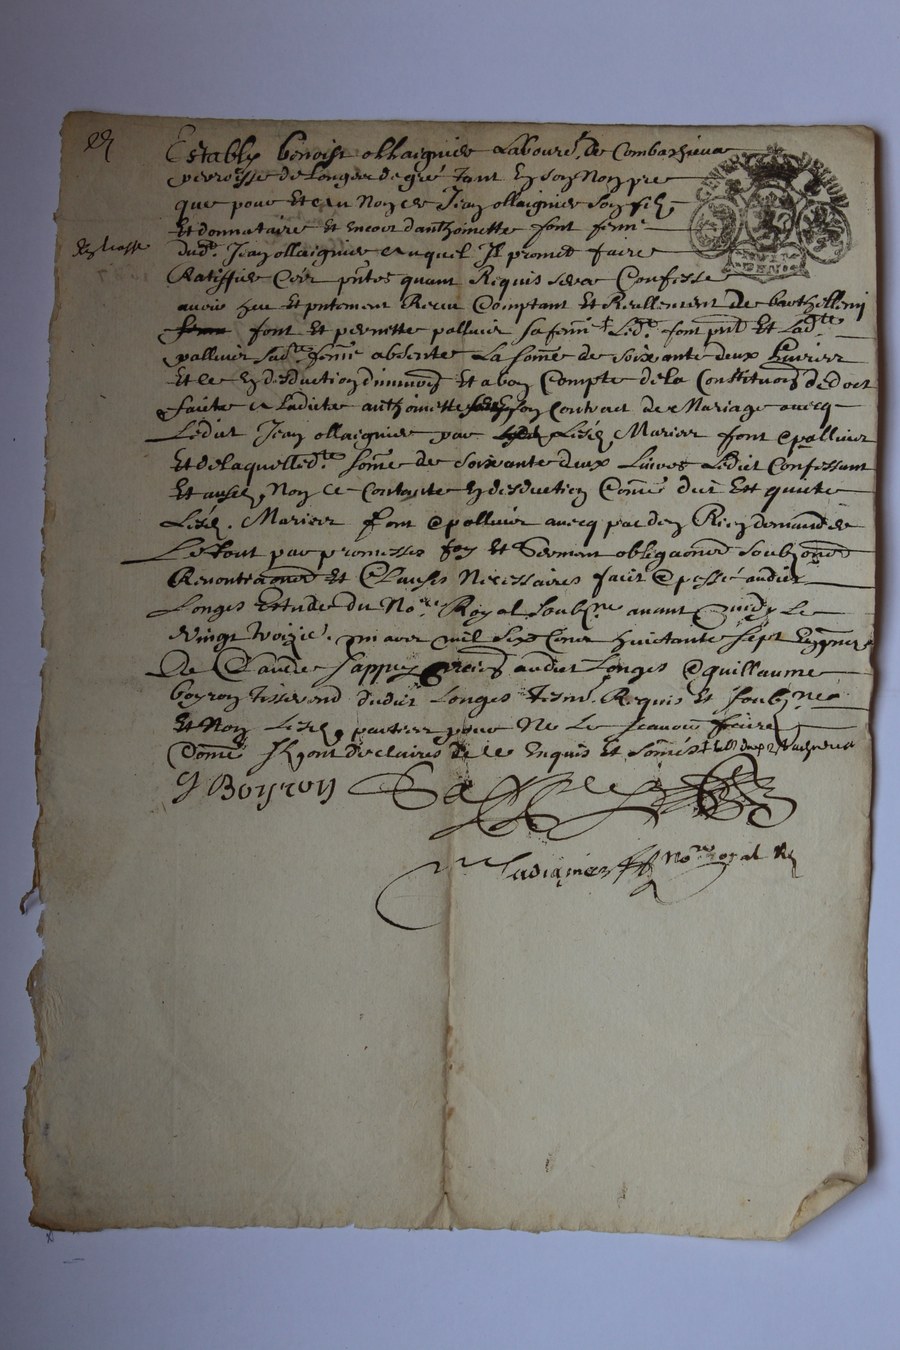 Establly benoist ollaignier Laboure.r de Combarzieux
perroisse de Longes de gré tant En son Nom pre
que pour Et Au Nom de Jean ollaignier son filz
Et donnataire Et encour d'anthoinette font fem.
dud. Jean ollaignier auquel Il promet faire
Ratiffier Ces pntes quant Requis sera Confesse
avoir heu Et pntement Receu Comptant Et Reellement De barthellemy
font Et pernette palluir sa fem Led. font pnt Et Lad.te
palluir sad.te feme absente La some de soixante deux Livres
Et ce En desduction Et a bon Compte de la Constituon de dot
faite a Ladicte anthoinette son Contract de Mariage avecq
Ledict Jean ollaignier par Les. Mariez font & palluir
Et de laquelle d.te some de soixante deux Livres Ledict Confessant
Et aud. Nom se Contante En desduction Come dict Est quicte
Les. Mariez font & palluir avecq pac de Rien demander
Le tout par promesses foy Et Serment obligaons soubzons
Renontiaons Et Clauses Necessaires faict & passé audict
Longes Estude du No.re Royal soub.ne avant midy Le
Vingt troizie. Janvier mil Six Cent huictante sept En pnce
De Claude Sappey audict Longes & guillaume
boyron tisserand dudict Longes tesm. Requis Et soub.nes
Et Non Les. parties pour Ne Le scavoir faire
Come Ils ont desclairés de ce Enquis et somés
G Boyron
No.re royal